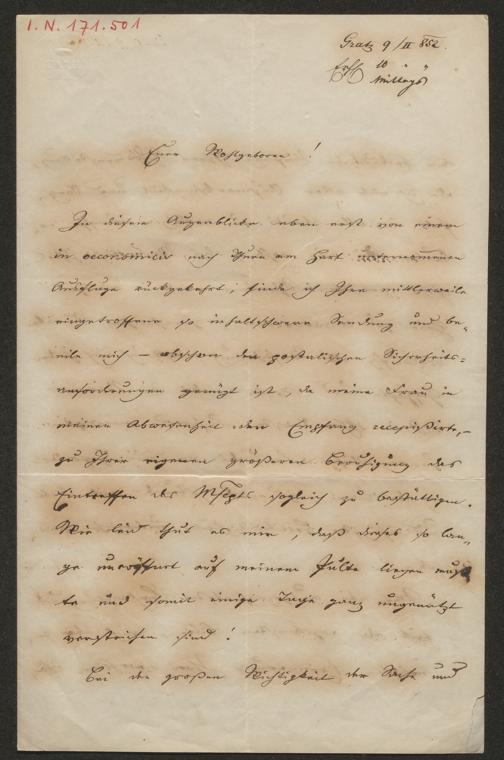 I. N. 171.501
Gratz 9/II 852.
10 " "
Mittags
Euer Wohlgeboren !
In diesem Augenblicke eben erst von einem
in oeconomicis nach Thurn am Hart unternommenen
Ausfluge rückgekehrt, finde ich Ihre mittlerweile
eingetroffene so inhaltschwere Sendung und be-
eile mich – obschon den postalischen Sicherheits-
anforderungen genügt ist, da meine Frau in
meiner Abwesenheit den Empfang recepissirte, –
zu Ihrer eigenen größeren Beruhigung das
Eintreffen des Mscpts sogleich zu bestättigen.
Wie leid thut es mir, daß dieses so lan-
ge uneröffnet auf meinem Pulte liegen muß-
te und somit einige Tage ganz ungenützt
verstrichen sind !
Bei der großen Wichtigkeit der Sache und